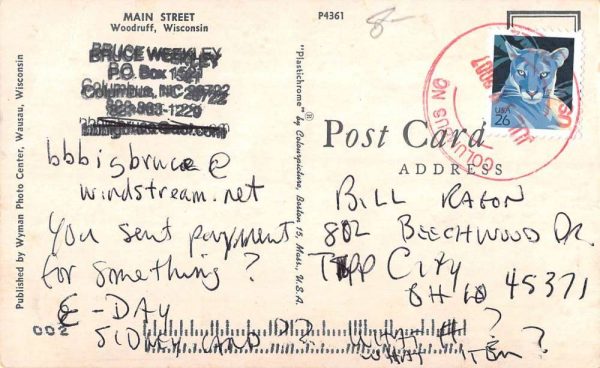 MAIN STREET
Woodruff, Wisconsin
P4361
8-
BRUCE WEEKLEY
P.O. Box 1521
Columbus, NC 28722
bbbigbruce@
windstream.net
You sent payment
for something?
E-DAY
SIDNEY CARD ??. WHAT #?
WHAT ITEM?
002
Published by Wyman Photo Center, Wausau, Wisconsin
"Plastichrome"® by Colourpicture, Boston 15, Mass., U.S.A.
Post Card
ADDRESS
BILL RAGON
802 BEECHWOOD DR
TIPP CITY
OH 45371
COLUMBUS NC
2007
USA
26